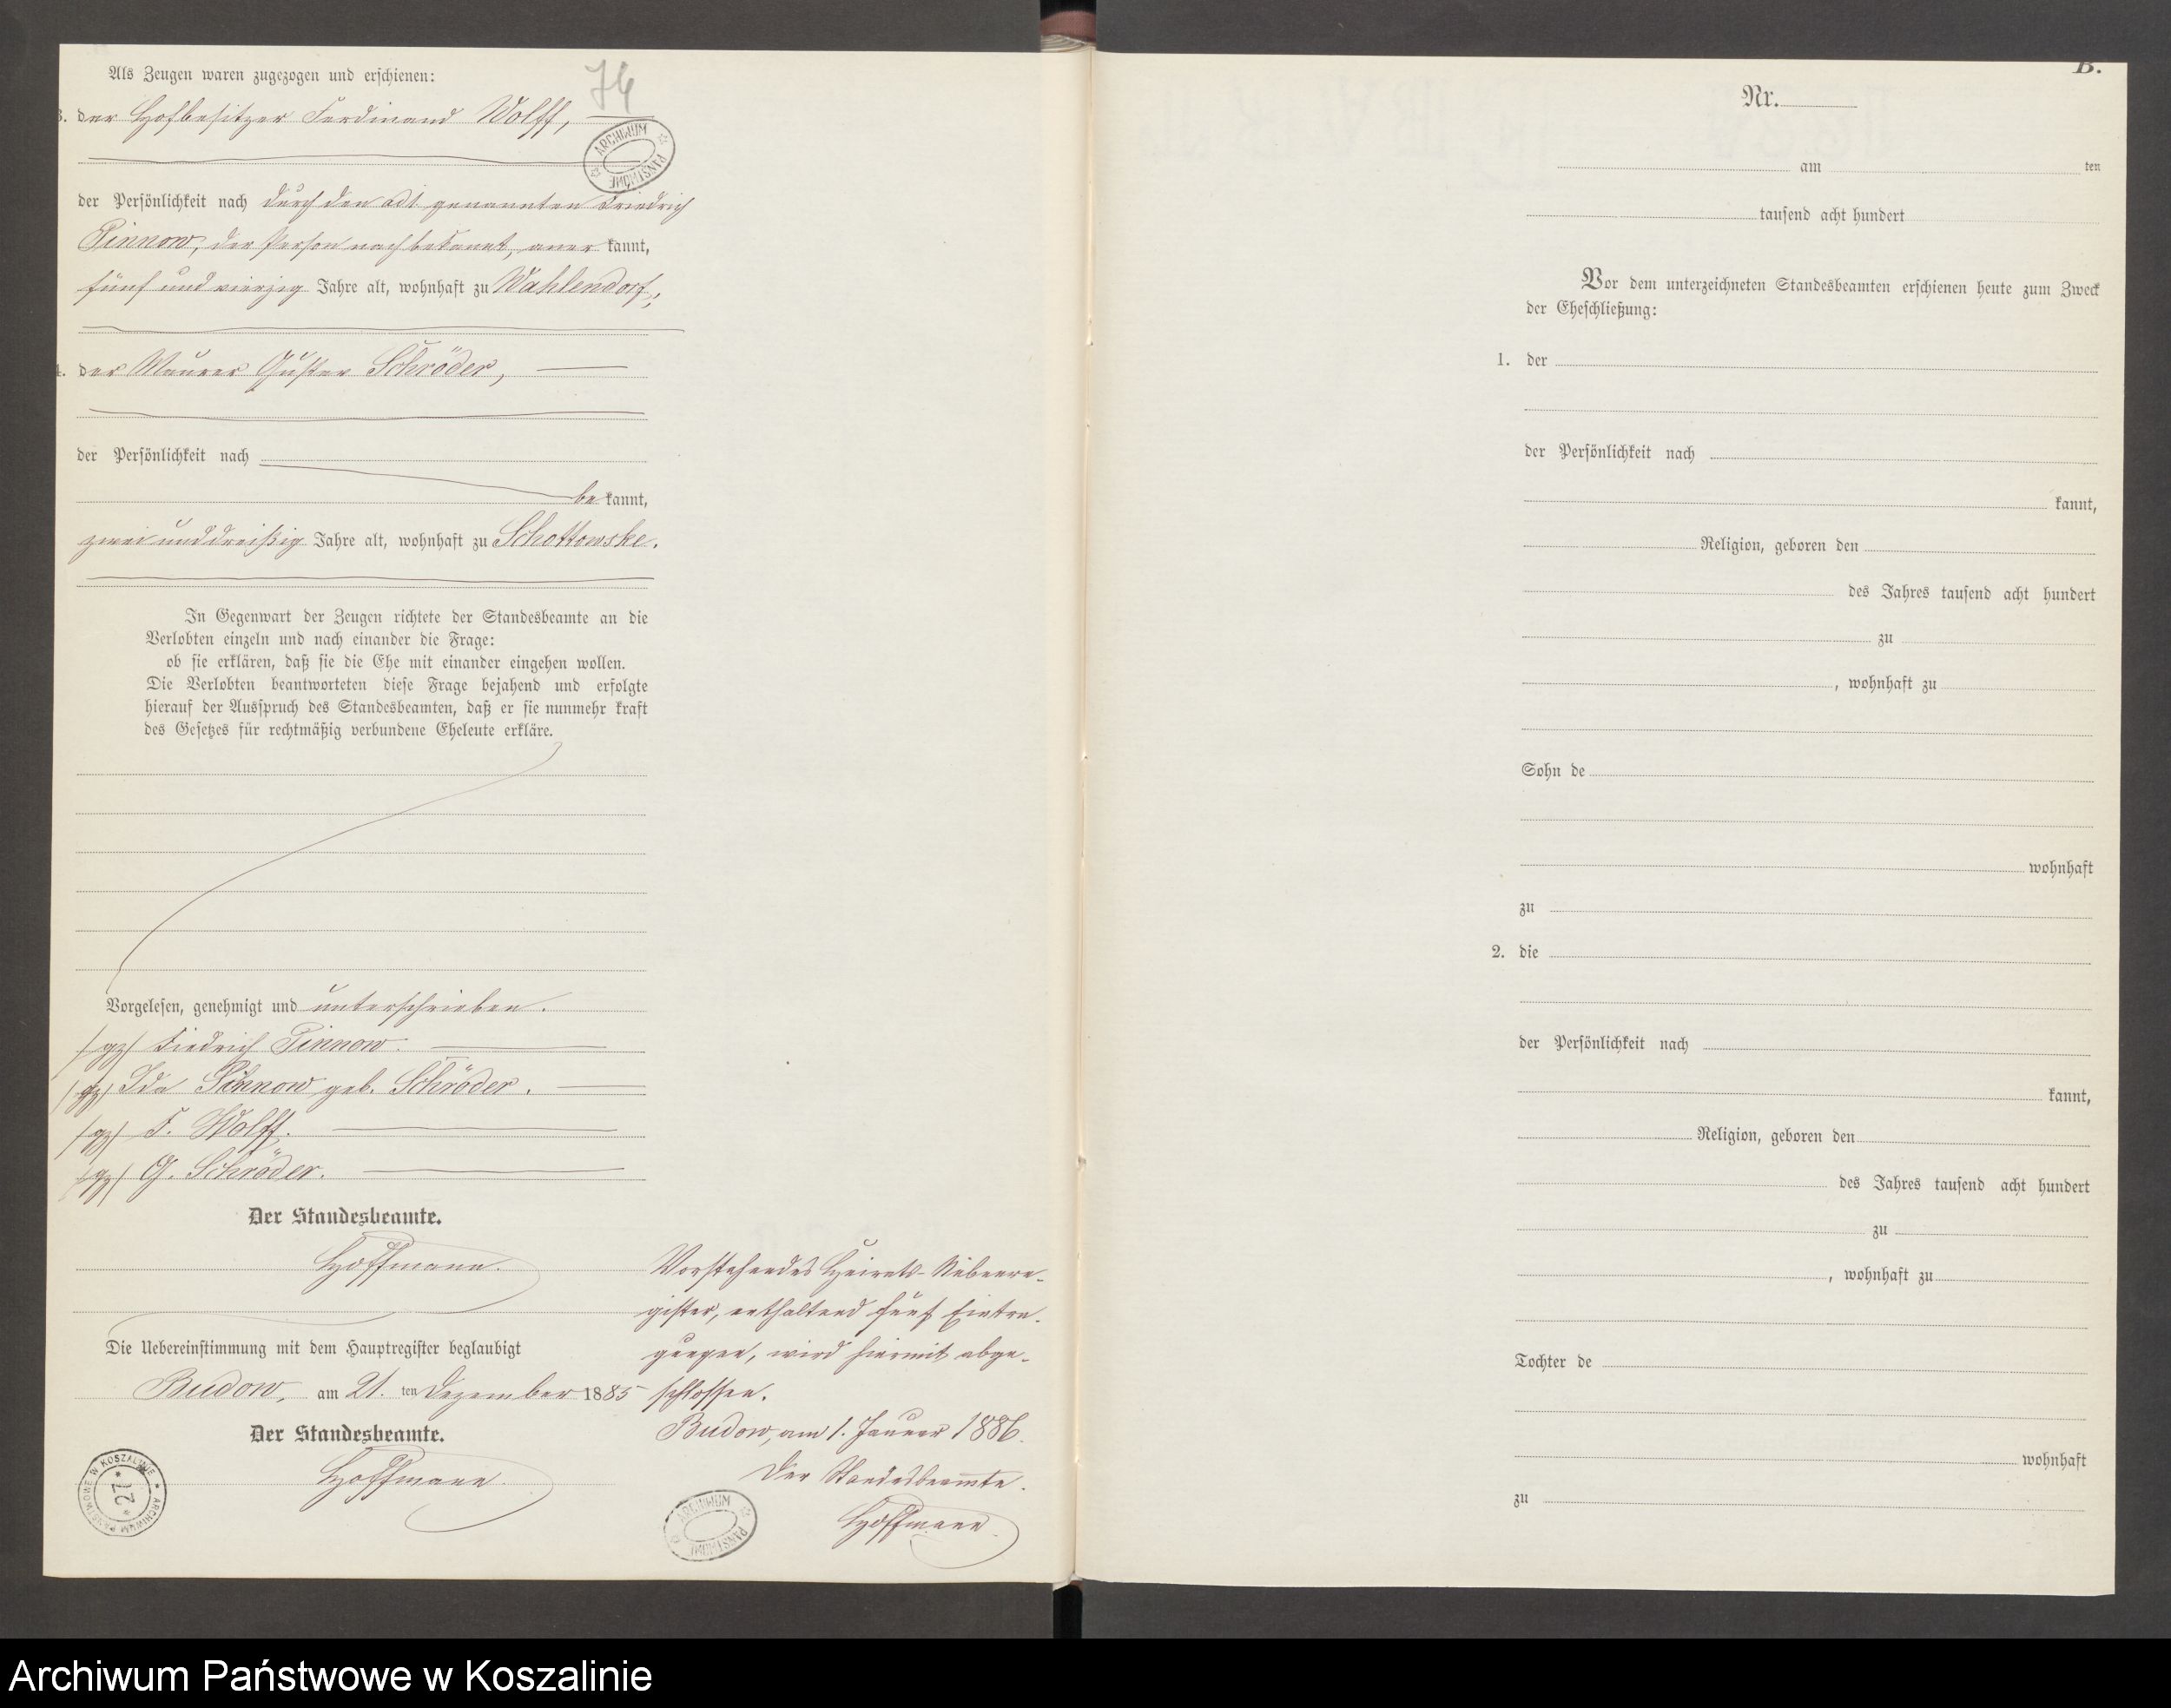 Als Zeugen waren zugezogen und erschienen:
74
3. der Hofbesitzer Ferdinand Wolff,
ARCHIWUM PAŃSTWOWE
der Persönlichkeit nach durch den ad 1 genannten Friedrich
Pinnow, der Person nach bekannt, aner kannt,
fünf und vierzig Jahre alt, wohnhaft zu Wahlendorf,
4. der Maurer Gustav Schröder,
der Persönlichkeit nach
be kannt,
zwei und dreißig Jahre alt, wohnhaft zu Schottowske.
In Gegenwart der Zeugen richtete der Standesbeamte an die
Verlobten einzeln und nach einander die Frage:
ob sie erklären, daß sie die Ehe mit einander eingehen wollen.
Die Verlobten beantworteten diese Frage bejahend und erfolgte
hierauf der Ausspruch des Standesbeamten, daß er sie nunmehr kraft
des Gesetzes für rechtmäßig verbundene Eheleute erkläre.
Vorgelesen, genehmigt und unterschrieben.
/gz/ Friedrich Pinnow.
/gz/ Ida Pinnow geb. Schröder.
/gz/ F. Wolff.
/gz/ G. Schröder.
Der Standesbeamte.
Hoffmann.
Die Uebereinstimmung mit dem Hauptregister beglaubigt
Budow, am 21. ten Dezember 1885
Der Standesbeamte.
Hoffmann.
ARCHIWUM PAŃSTWOWE W KOSZALINIE
* 27 *
Vorstehendes Heirats-Nebenre-
gister, enthaltend fünf Eintra-
gungen, wird hiermit abge-
schlossen.
Budow, am 1. Januar 1886.
Der Standesbeamte.
Hoffmann.
ARCHIWUM PAŃSTWOWE
B.
Nr.
am ten
tausend acht hundert
Vor dem unterzeichneten Standesbeamten erschienen heute zum Zweck
der Eheschließung:
1. der
der Persönlichkeit nach
kannt,
Religion, geboren den
des Jahres tausend acht hundert
zu
, wohnhaft zu
Sohn de
wohnhaft
zu
2. die
der Persönlichkeit nach
kannt,
Religion, geboren den
des Jahres tausend acht hundert
zu
, wohnhaft zu
Tochter de
wohnhaft
zu
Archiwum Państwowe w Koszalinie